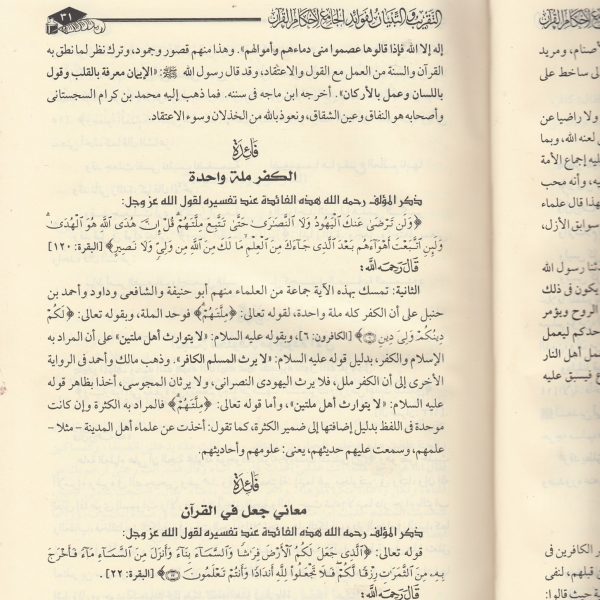 ٣١
التقريب والتبيان لفوائد الجامع لأحكام القرآن
إله إلا الله فإذا قالوها عصموا منى دماءهم وأموالهم». وهذا منهم قصور وجمود، وترك نظر لما نطق به
القرآن والسنة من العمل مع القول والاعتقاد، وقد قال رسول الله ﷺ: «الإيمان معرفة بالقلب وقول
باللسان وعمل بالأركان». أخرجه ابن ماجه فى سننه. فما ذهب إليه محمد بن كرام السجستانى
وأصحابه هو النفاق وعين الشقاق، ونعوذ بالله من الخذلان وسوء الاعتقاد.
فَائِدَة
الكفر ملة واحدة
ذكر المؤلف رحمه الله هذه الفائدة عند تفسيره لقول الله عز وجل:
﴿وَلَن تَرْضَىٰ عَنكَ الْيَهُودُ وَلَا النَّصَارَىٰ حَتَّىٰ تَتَّبِعَ مِلَّتَهُمْ ۗ قُلْ إِنَّ هُدَى اللَّهِ هُوَ الْهُدَىٰ ۗ
وَلَئِنِ اتَّبَعْتَ أَهْوَاءَهُم بَعْدَ الَّذِي جَاءَكَ مِنَ الْعِلْمِ ۙ مَا لَكَ مِنَ اللَّهِ مِن وَلِيٍّ وَلَا نَصِيرٍ﴾ [البقرة: ١٢٠]
قَالَ رَحِمَهُ اللَّه:
الثانية: تمسك بهذه الآية جماعة من العلماء منهم أبو حنيفة والشافعى وداود وأحمد بن
حنبل على أن الكفر كله ملة واحدة، لقوله تعالى: ﴿مِلَّتَهُمْ﴾ فوحد الملة، وبقوله تعالى: ﴿لَكُمْ
دِينُكُمْ وَلِيَ دِينِ ۝٦﴾ [الكافرون: ٦]، وبقوله عليه السلام: «لا يتوارث أهل ملتين» على أن المراد به
الإسلام والكفر، بدليل قوله عليه السلام: «لا يرث المسلم الكافر». وذهب مالك وأحمد فى الرواية
الأخرى إلى أن الكفر ملل، فلا يرث اليهودى النصرانى، ولا يرثان المجوسى، أخذا بظاهر قوله
عليه السلام: «لا يتوارث أهل ملتين»، وأما قوله تعالى: ﴿مِلَّتَهُمْ﴾ فالمراد به الكثرة وإن كانت
موحدة فى اللفظ بدليل إضافتها إلى ضمير الكثرة، كما تقول: أخذت عن علماء أهل المدينة – مثلا –
علمهم، وسمعت عليهم حديثهم، يعنى: علومهم وأحاديثهم.
فَائِدَة
معاني جعل في القرآن
ذكر المؤلف رحمه الله هذه الفائدة عند تفسيره لقول الله عز وجل:
قوله تعالى: ﴿الَّذِي جَعَلَ لَكُمُ الْأَرْضَ فِرَاشًا وَالسَّمَاءَ بِنَاءً وَأَنزَلَ مِنَ السَّمَاءِ مَاءً فَأَخْرَجَ
بِهِ مِنَ الثَّمَرَاتِ رِزْقًا لَّكُمْ ۖ فَلَا تَجْعَلُوا لِلَّهِ أَندَادًا وَأَنتُمْ تَعْلَمُونَ ۝٢٢﴾ [البقرة: ٢٢].
قَالَ رَحِمَهُ اللَّه:
لأحكام القرآن
أصنام، ومريد
لى ساخط على
ولا راضيا عن
لعنه الله، وبما
ليه إجماع الأمة
يه، وأنه محب
هذا قال علماء
سوابق الأزل،
دثنا رسول الله
يكون فى ذلك
الروح ويؤمر
حدكم ليعمل
مل أهل النار
ع فيسبق عليه
ر الكافرين فى
ن قبلهم، لنفى
ية حيث قالوا: